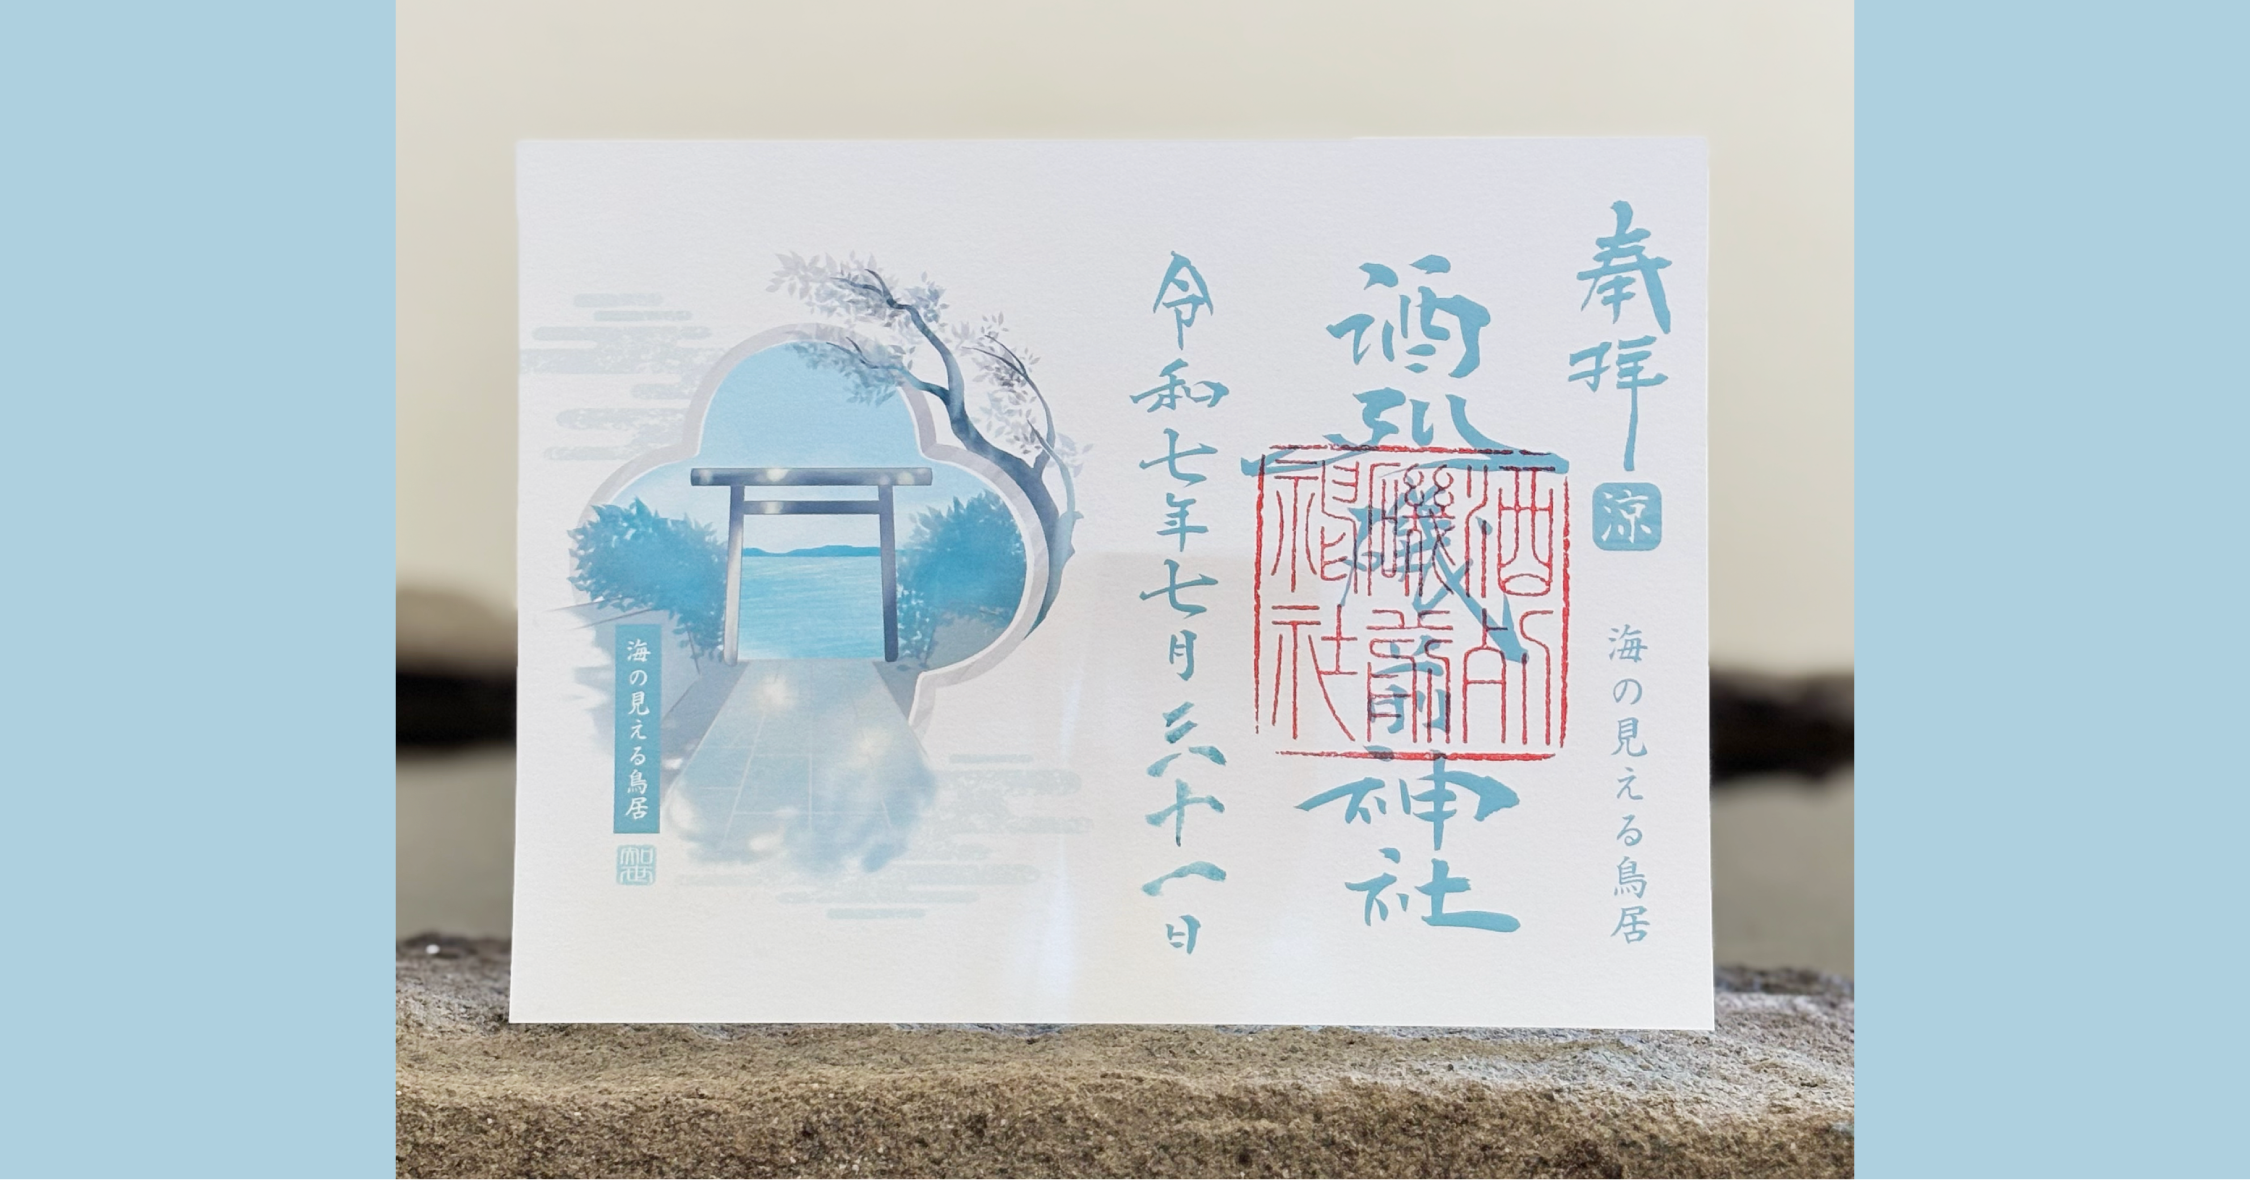 奉拝
涼
海の見える鳥居
酒列磯前神社
酒列
磯前
神社
令和七年七月三十一日
海の見える鳥居